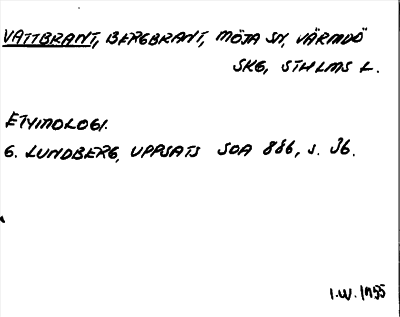 VATTBRANT, BERGBRANT, MÖJA SN, VÄRMDÖ
SKG, STHLMS L.
ETYMOLOGI.
G. LUNDBERG, UPPSATS SOA 886, S. 36.
I.W. 1955